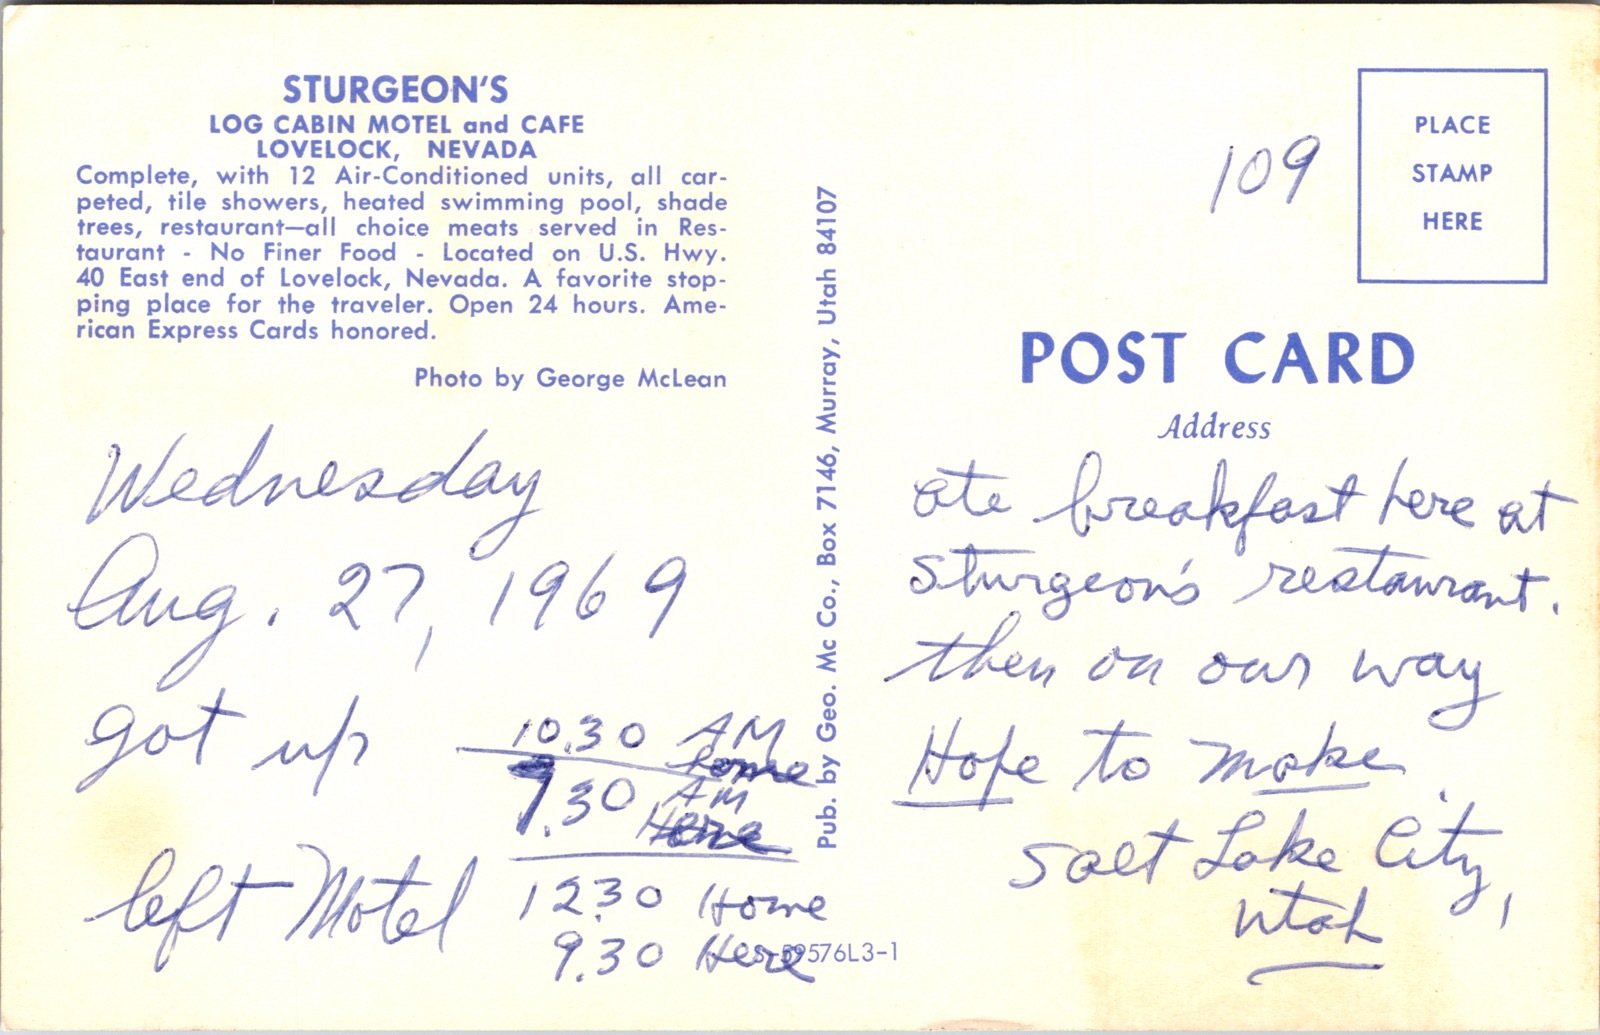 STURGEON'S
LOG CABIN MOTEL and CAFE
LOVELOCK, NEVADA
Complete, with 12 Air-Conditioned units, all car-
peted, tile showers, heated swimming pool, shade
trees, restaurant—all choice meats served in Res-
taurant - No Finer Food - Located on U.S. Hwy.
40 East end of Lovelock, Nevada. A favorite stop-
ping place for the traveler. Open 24 hours. Ame-
rican Express Cards honored.
Photo by George McLean
Wednesday
Aug. 27, 1969
got up 10.30 AM
Home
7.30 AM
Here
left Motel 12.30 Home
9.30 Here
S-59576L3-1
Pub. by Geo. Mc Co., Box 7146, Murray, Utah 84107
109
PLACE
STAMP
HERE
POST CARD
Address
ate breakfast here at
Sturgeon's restaurant.
then on our way
Hope to make
Salt Lake City,
Utah